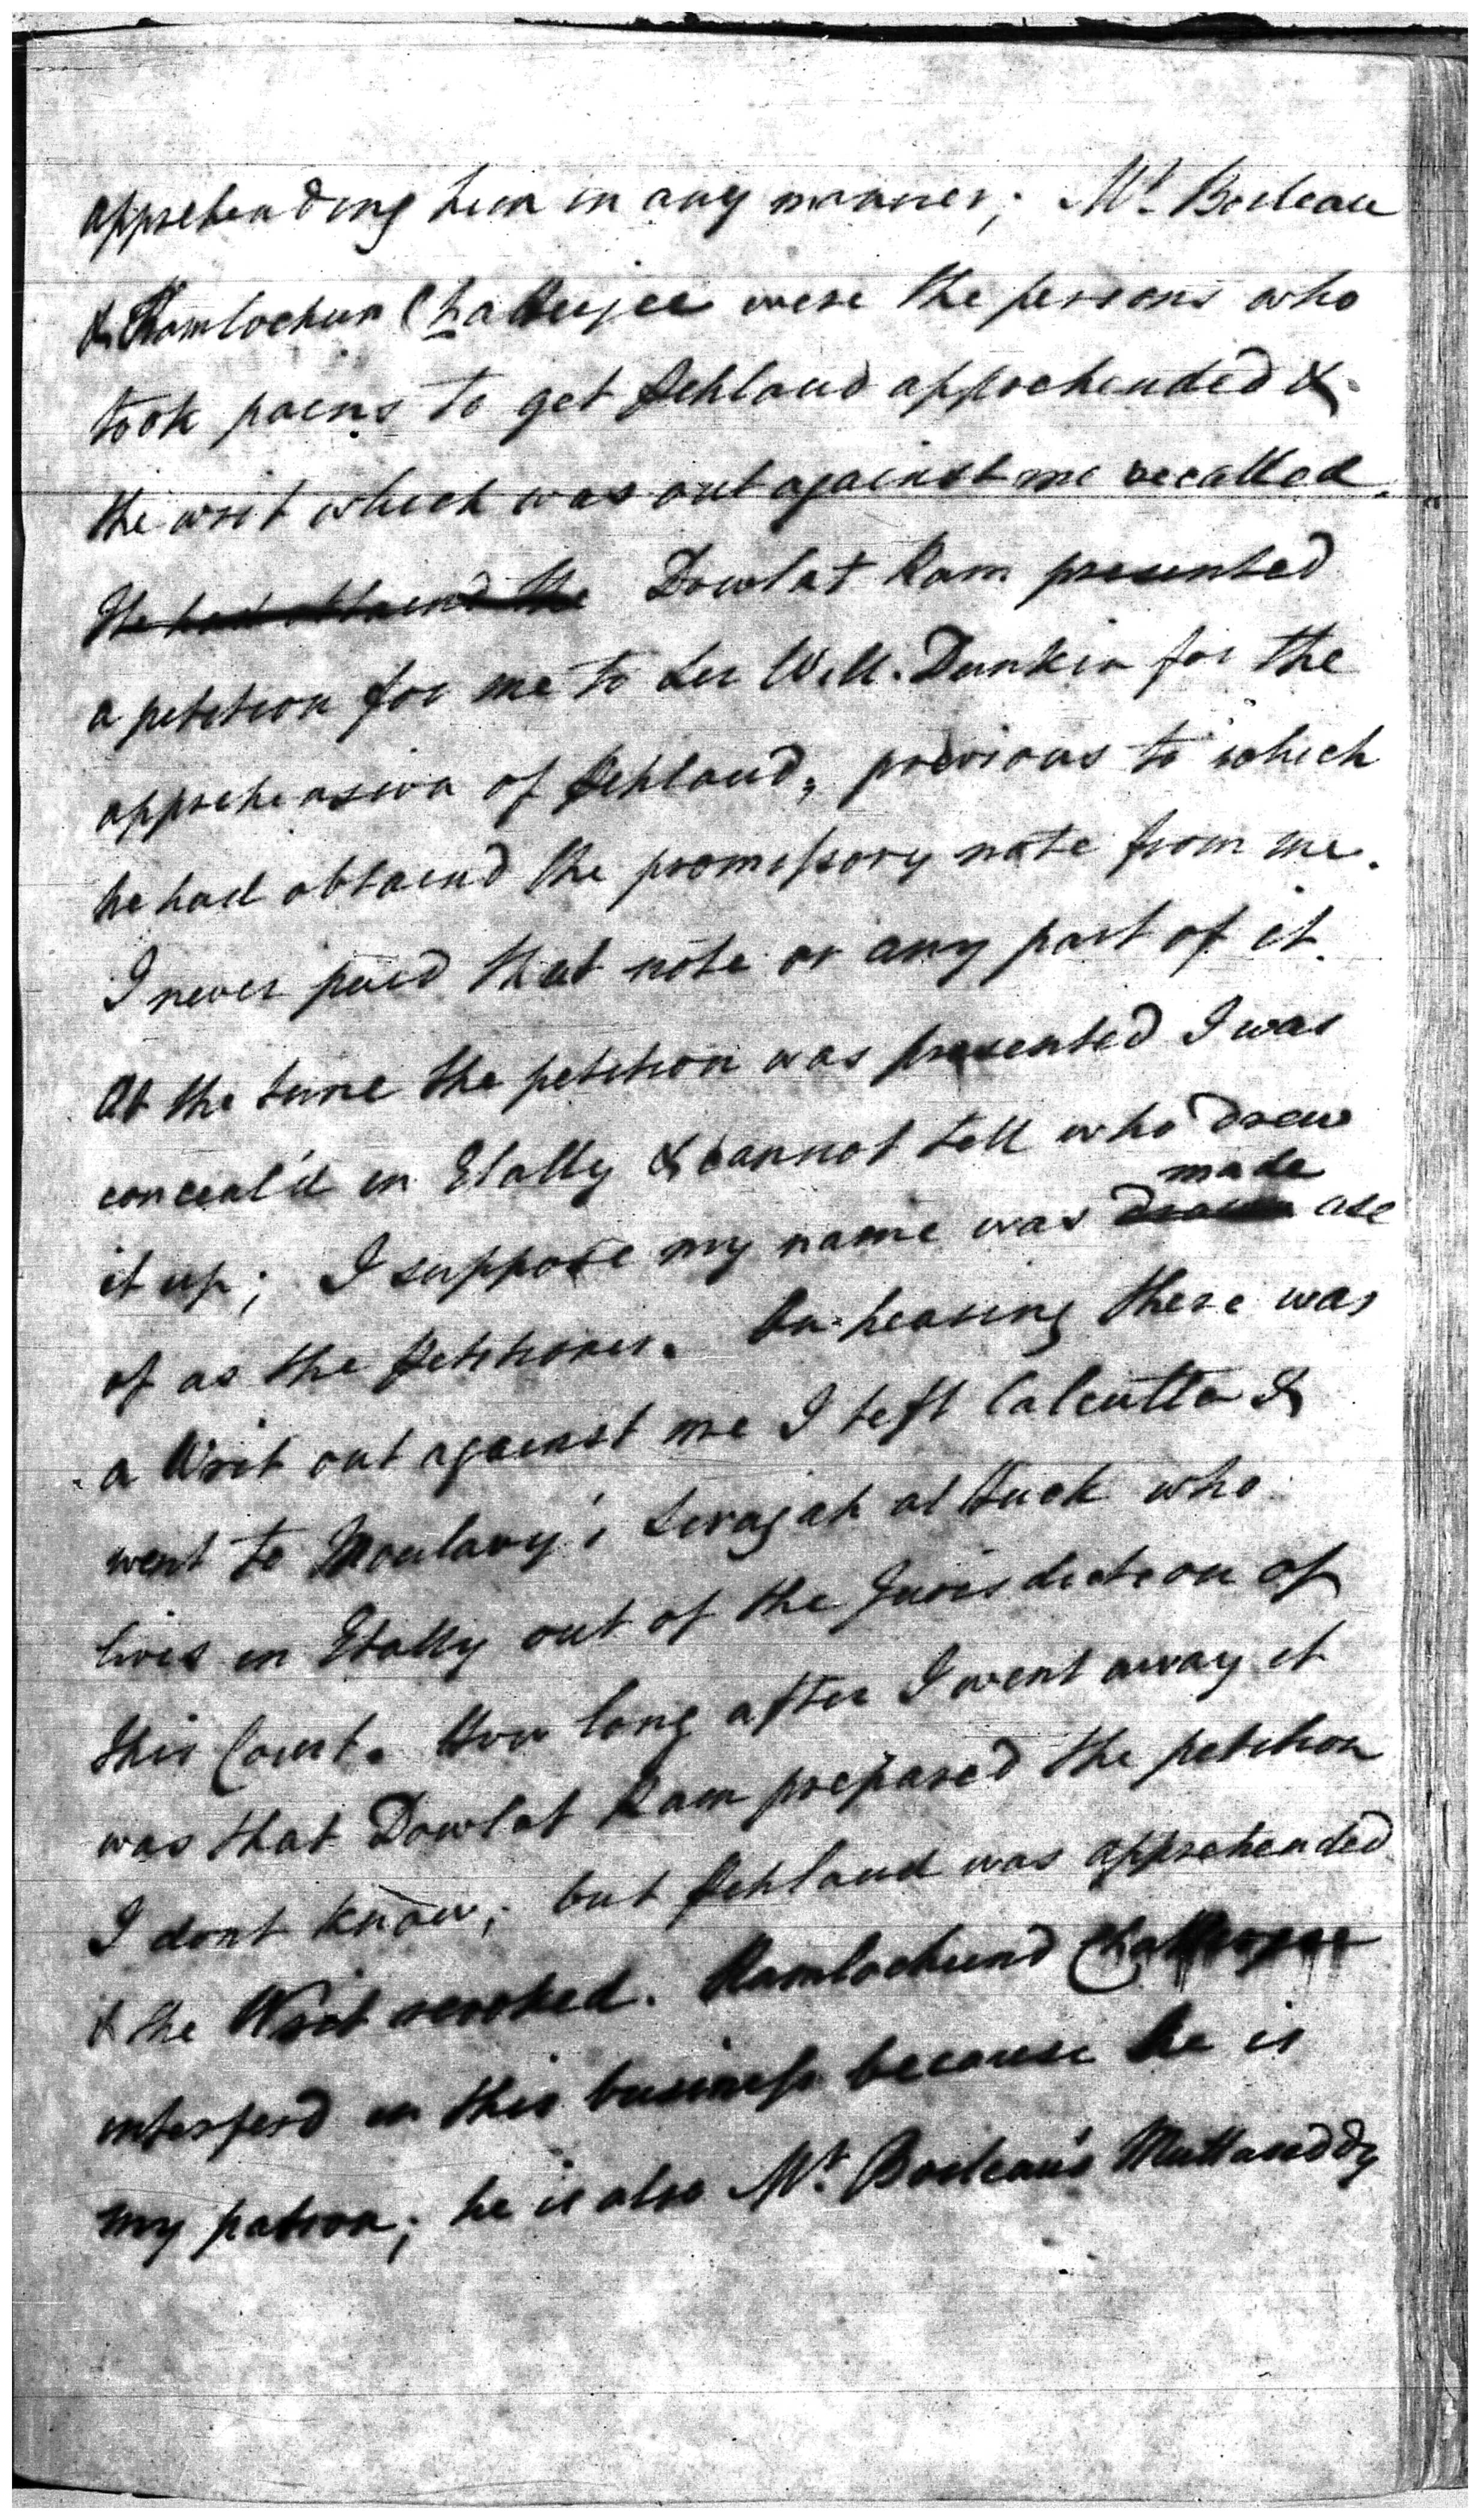 apprehending him in any manner; Mr. Boileau
& Ramlochun Chatterjee were the persons who
took pains to get Pehlaud apprehended &
the writ which was out against me recalled.
He had obtaind the Dowlat Ram presented
a petition for me to Sir Will. Dunkin for the
apprehension of Pehlaud, previous to which
he had obtaind the promissory note from me.
I never paid that note or any part of it.
At the time the petition was presented I was
conceal'd in Etally & cannot tell who drew
it up; I suppose my name was made use
of as the Petitioner. On hearing there was
a Writ out against me I left Calcutta &
went to Moulavy Serajah al Huck who
lives in Etally out of the Jurisdiction of
this Court. How long after I went away it
was that Dowlat Ram prepared the petition
I dont know; but Pehlaud was apprehended
& the Writ revoked. Ramlochund Chatterjee
interferd in this business because he is
my patron; he is also Mr. Boileau's Muttaseddy